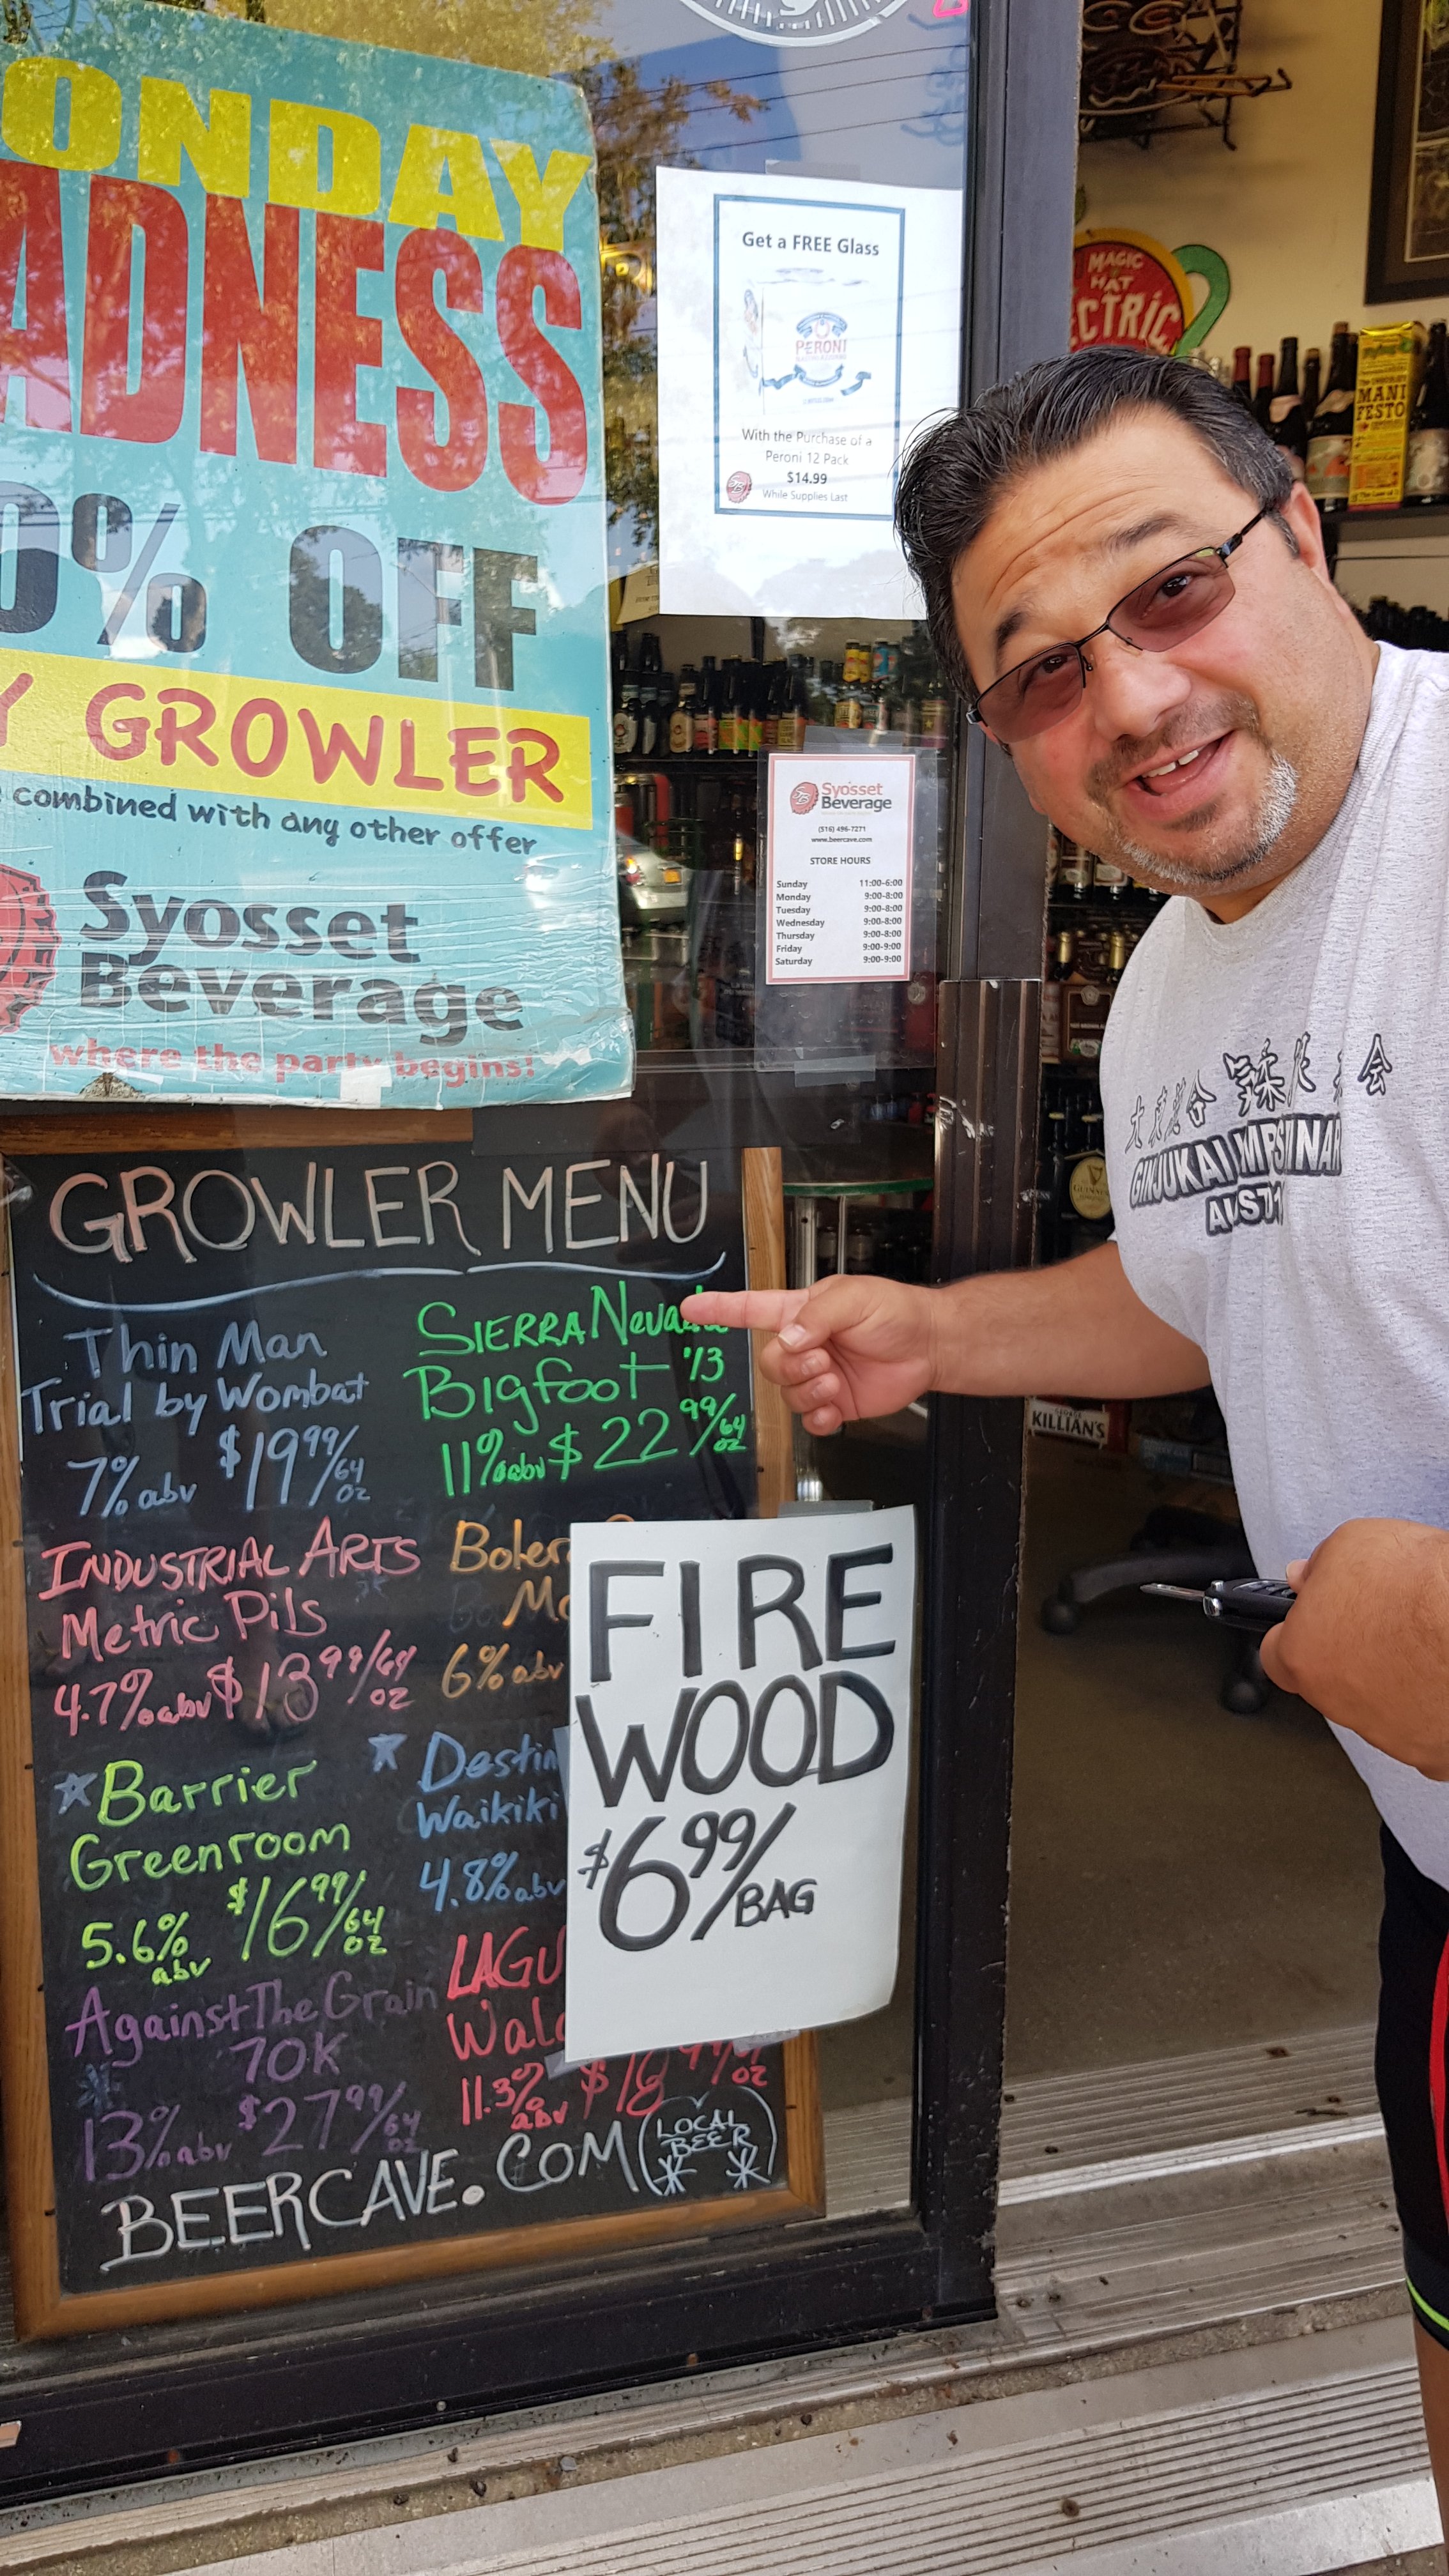 ONDAY
ADNESS
0% OFF
Y GROWLER
combined with any other offer
Syosset
Beverage
where the party begins!
Get a FREE Glass
PERONI
With the Purchase of a
Peroni 12 Pack
$14.99
While Supplies Last
MAGIC
HAT
CTRIC
MANI
FESTO
Syosset
Beverage
(516) 496-7271
www.beercave.com
STORE HOURS
Sunday 11:00-6:00
Monday 9:00-8:00
Tuesday 9:00-8:00
Wednesday 9:00-8:00
Thursday 9:00-8:00
Friday 9:00-9:00
Saturday 9:00-9:00
GROWLER MENU
Thin Man
Trial by Wombat
7% abv $19.99/64 oz
SIERRA Nevada
Bigfoot '13
11% abv $22.99/64 oz
INDUSTRIAL ARTS
Metric Pils
4.7% abv $13.99/64 oz
Boler
Mo
6% abv
Barrier
Greenroom
5.6% abv $16.99/64 oz
Destin
Waikiki
4.8% abv
Against The Grain
70K
13% abv $27.99/64 oz
LAGU
Wald
11.3% abv
oz
BEERCAVE.COM
LOCAL
BEER
FIRE
WOOD
$6.99/BAG
GUINNESS
KILLIAN'S
GINJUKAI